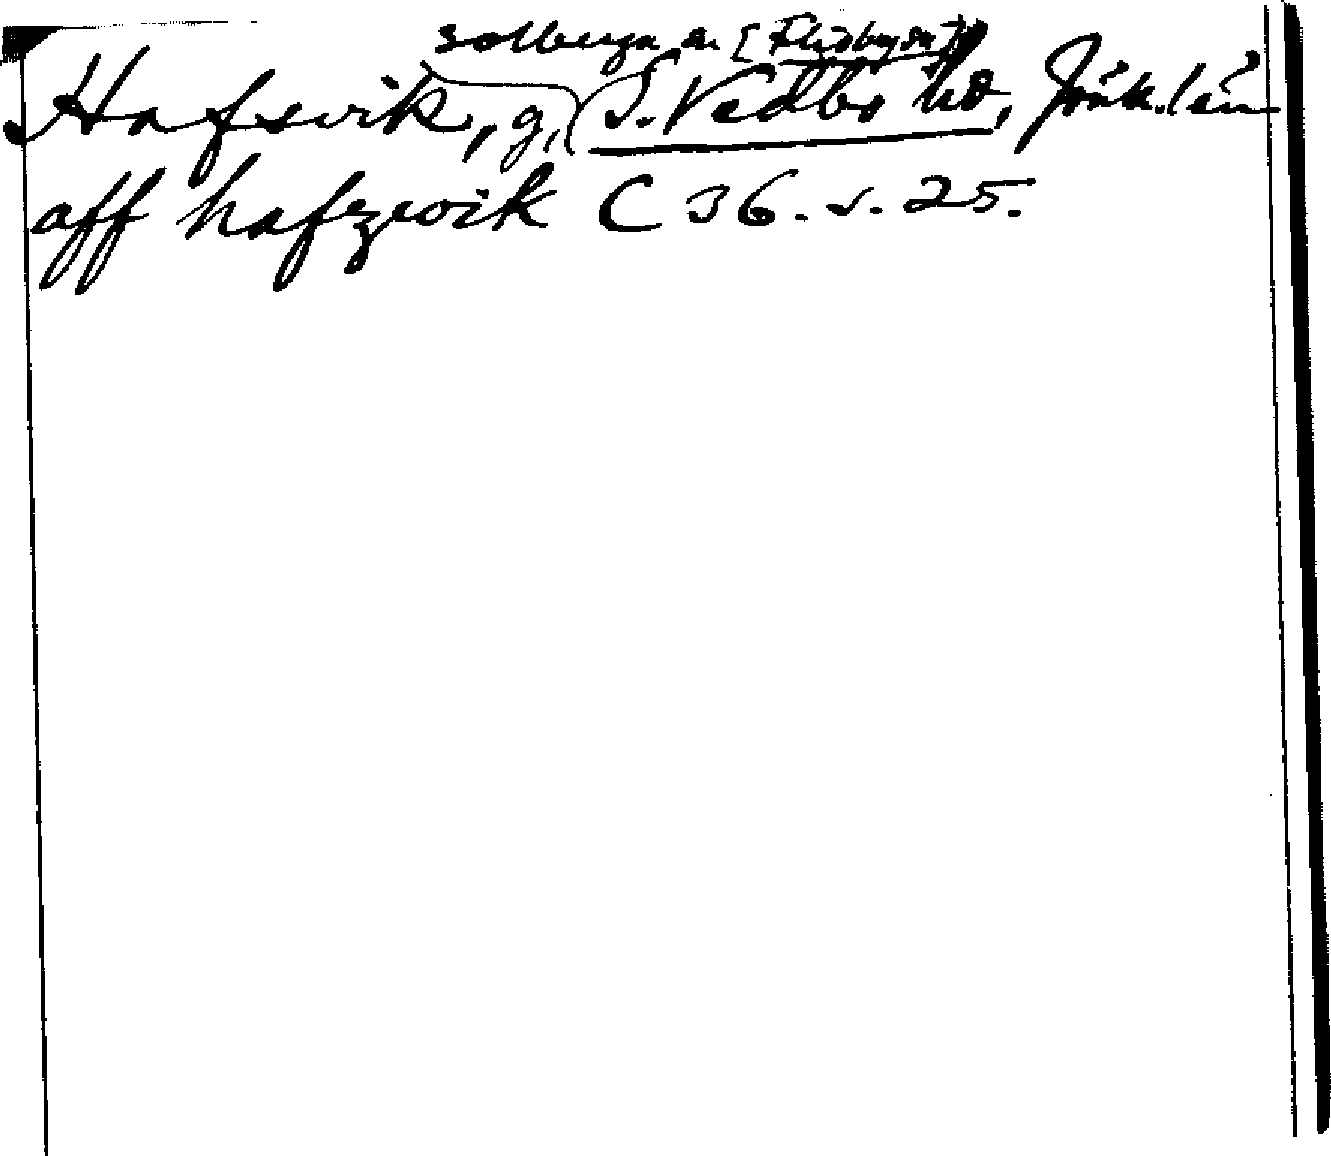 Solberga sn [Flisby sn]
Hafsvik, g, S. Vedbo hd, Jönk. län
aff hafzwik C 36. s. 25.